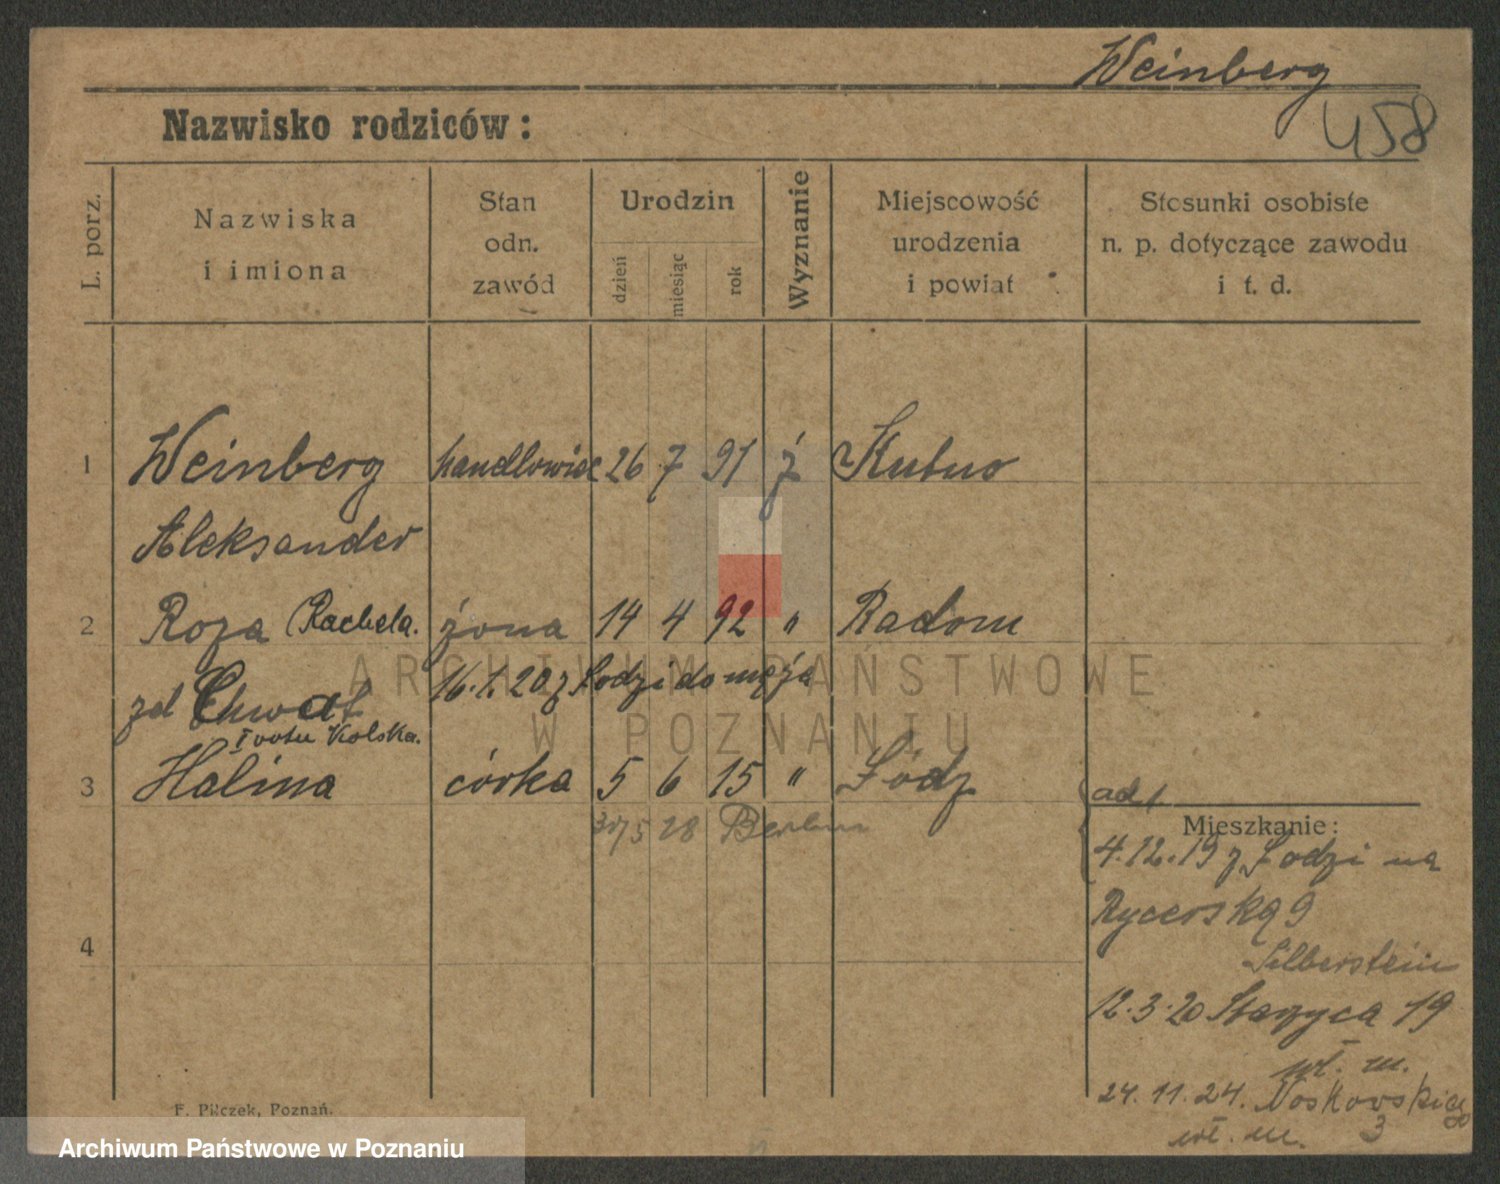 Weinberg
458
Nazwisko rodziców:
L. porz.
Nazwiska
i imiona
Stan
odn.
zawód
Urodzin
dzień
miesiąc
rok
Wyznanie
Miejscowość
urodzenia
i powiat
Stosunki osobiste
n. p. dotyczące zawodu
i t. d.
1 Weinberg handlowiec 26 7 91 ż Kutno
Aleksander
2 Roza (Rachela. żona 14 4 92 " Radom
zd Chwat 16.1.20 z Łodzi do męża
I voto Kolska.
3 Halina córka 5 6 15 " Łódz
28 Berlin
ad 1
Mieszkanie:
4.12.19 z Łodzi na
Rycerską 9
Silberstein
4
12.3.20 Staszyca 19
wł. m.
24.11.24. Noskowskiego
wł. m. 3
F. Pilczek, Poznań.
ARCHIWUM PAŃSTWOWE
W POZNANIU
Archiwum Państwowe w Poznaniu